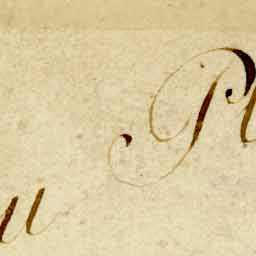 Pl
u